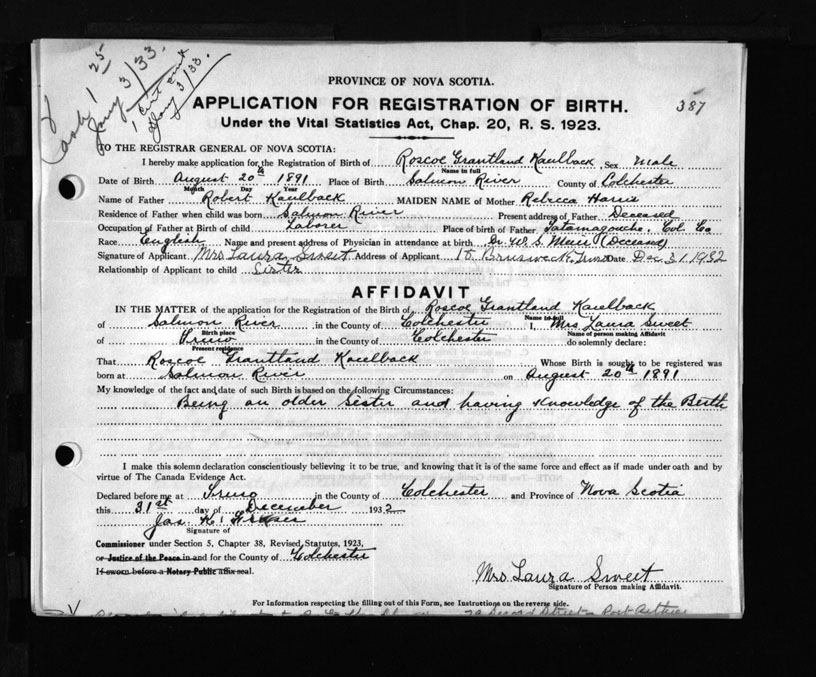 Cash 1 25
Jany 3/33.
1 cert sent
Jany 3/33.
PROVINCE OF NOVA SCOTIA.
387
APPLICATION FOR REGISTRATION OF BIRTH.
Under the Vital Statistics Act, Chap. 20, R. S. 1923.
TO THE REGISTRAR GENERAL OF NOVA SCOTIA:
I hereby make application for the Registration of Birth of Roscoe Grantland Kaulback Sex Male
Name in full
Date of Birth August 20th 1891 Place of Birth Salmon River County of Colchester
Month Day Year
Name of Father Robert Kaulback MAIDEN NAME of Mother Rebecca Harris
Residence of Father when child was born Salmon River Present address of Father Deceased
Occupation of Father at Birth of child Laborer Place of birth of Father Tatamagouche, Col. Co
Race English Name and present address of Physician in attendance at birth Dr. W. S. Muir (Deceased)
Signature of Applicant Mrs Laura Sweet Address of Applicant 10 Brunswick, Truro Date Dec 31. 1932
Relationship of Applicant to child Sister
AFFIDAVIT
IN THE MATTER of the application for the Registration of the Birth of Roscoe Grantland Kaulback
Name in full
of Salmon River in the County of Colchester I, Mrs Laura Sweet
Birth place Name of person making Affidavit
of Truro in the County of Colchester do solemnly declare:
Present residence
That Roscoe Grantland Kaulback Whose Birth is sought to be registered was
born at Salmon River on August 20th 1891
My knowledge of the fact and date of such Birth is based on the following Circumstances:
Being an older sister and having knowledge of the Birth
I make this solemn declaration conscientiously believing it to be true, and knowing that it is of the same force and effect as if made under oath and by
virtue of The Canada Evidence Act.
Declared before me at Truro in the County of Colchester and Province of Nova Scotia
this 31st day of December 1932
Jas. K. Fraser
Signature of
Commissioner under Section 5, Chapter 38, Revised Statutes, 1923,
or Justice of the Peace in and for the County of Colchester
If sworn before a Notary Public affix seal.
Mrs Laura Sweet
Signature of Person making Affidavit.
For Information respecting the filling out of this Form, see Instructions on the reverse side.